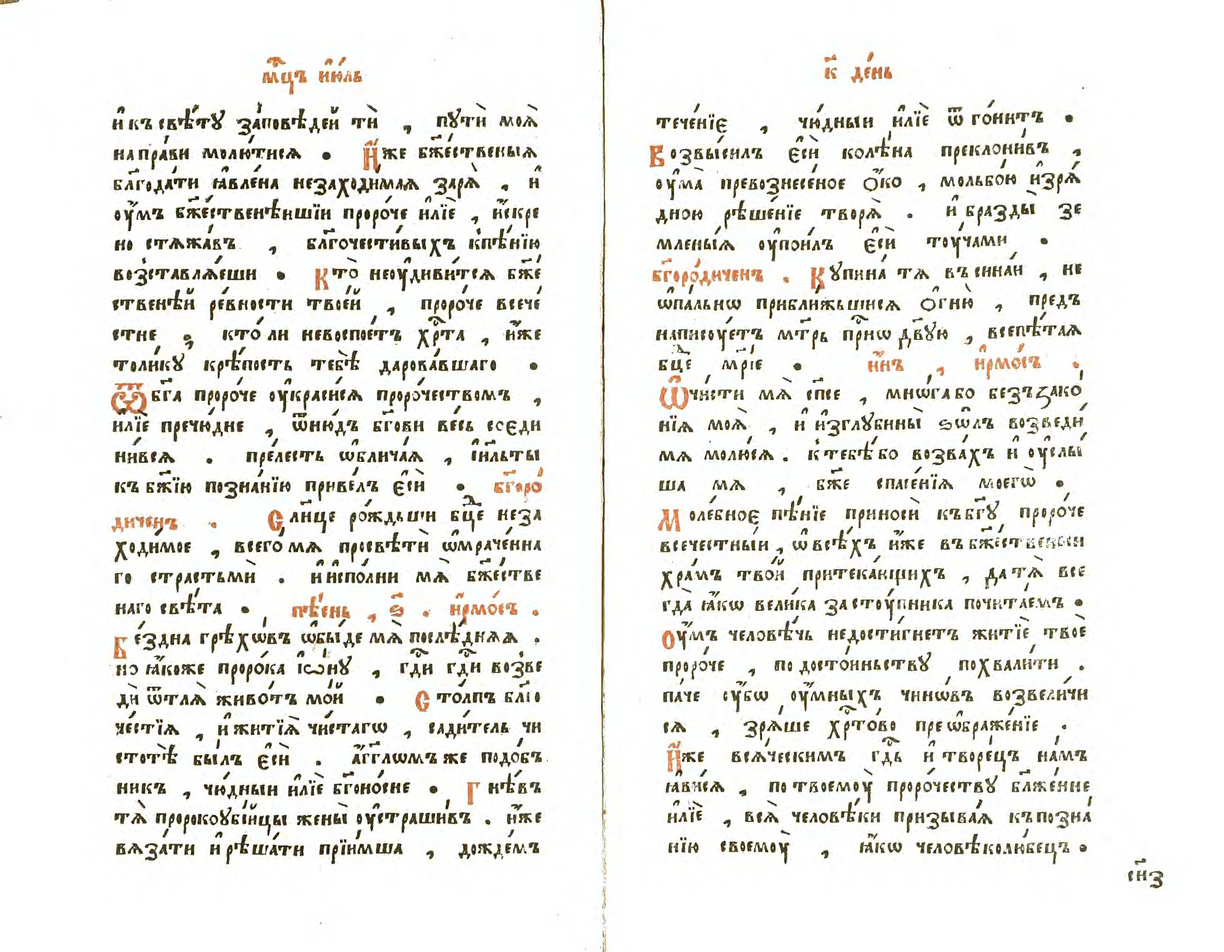 мⷭ҇цъ і҆ю́ль
и҆ къ свѣ́тꙋ за́повѣдей тѝ , пꙋтѝ моѧ̀
напра́ви молю́тисѧ . И҆́же бж҃ественыѧ
блгода́ти ꙗ҆вле́на незаходи́маѧ зарѧ̀ , и҆
оу҆́мъ бж҃ественѣишїи проро́че и҆лїѐ , и҆́скре
но стѧжа́въ , бл҃гочести́выхъ к̾пѣ́нїю
возставлѧ́еши . Кто̀ неоу҆диви́тсѧ бж҃е
ственѣ́й ре́вности твое́й , проро́че всече́
стне , кто́ ли невоспое́тъ хрⷭ҇та̀ , и҆́же
толи́кꙋ крѣ́пость тебѣ̀ дарова́вшаго .
Ѿ бг҃а проро́че оу҆краси́сѧ проро́чествомъ ,
и҆лїѐ пречю́дне , ѿню́дъ бг҃ови ве́сь соєди
ни́всѧ . пре́лесть ѡ҆блича́ѧ , и҆ и҆л҃ьты
къ бж҃їю позна́нїю приве́лъ є҆сѝ . бг҃оро́
диченъ . Сл҃нце ро́ждьши бц҃е неза
ходи́мое , всего́ мѧ просвѣтѝ ѡ҆мраче́нна
го страстьмѝ . и҆ и҆спо́лни мѧ̀ бж҃е́стве
наго свѣ́та . пѣ́снь , ѕ҃ . і҆рмо́съ .
Бе́здна грѣхѡ́въ ѡ҆бы́де мѧ̀ послѣ́днѧѧ .
но ꙗ҆́коже проро́ка і҆ѡ́нꙋ , гдⷭ҇и гдⷭ҇и возве
дѝ ѿтлѧ̀ живо́тъ мо́й . Сто́лпъ бл҃го
че́стїѧ , и҆ житїѧ̀ чи́стагѡ , сади́тель чи
стотѣ̀ бы́лъ є҆сѝ . а҆́гг҃лѡмъ же подо́бъ
никъ , чю́дныи и҆лїѐ бг҃оно́сне . Гнѣ́въ
тѧ̀ пророкоуби́йцы жены̀ оу҆страши́въ . и҆́же
вѧза́ти и҆ рѣша́ти прїи́мша , дожде́мъ
к҃ де́нь
тече́нїє , чю́дныи и҆лїѐ ѿ го́нитъ .
Возвы́силъ є҆сѝ колѣ́на прекло́нивъ ,
оу҆ма̀ превознесе́ное ѻ҆́ко , мольбо́ю и҆зрѧ́
дною рѣше́нїе творѧ̀ . и҆ бразды̀ зе
мле́ныѧ оу҆пои́лъ є҆сѝ тоу́чами .
бг҃оро́диченъ . Кꙋпина̀ тѧ̀ въ сина́и , не
ѡ҆па́льнѡ прибли́жьшисѧ ѻ҆гню̀ , предъ
написоу́етъ мт҃рь прⷭ҇нѡ дв҃ꙋю , всепѣ́таѧ
бц҃е мр҃іе . и҆́нъ , і҆рмо́съ .
Ѡ҆чи́сти мѧ̀ сп҃се , мнѡ́га бо безъꙁако́
нїѧ моѧ̀ , и҆ и҆зглꙋбины̀ ѕѡ́лъ возведѝ
мѧ молю́сѧ . к̾тебѣ́ бо возва́хъ и҆ оу҆слы́
ша мѧ , бж҃е спасе́нїѧ моегѡ̀ .
Моле́бноє пѣ́нїе приносѝ къ бг҃ꙋ проро́че
всече́стныи , ѡ҆ всѣ́хъ и҆́же въ бж҃е́ственныи
хра́мъ тво́й притека́ющихъ , да тѧ̀ все
гда̀ ꙗ҆́кѡ вели́ка застоу́пника почита́емъ .
Оу҆́мъ человѣ́чь недости́гнетъ житїѐ твоѐ
проро́че , по досто́иньствꙋ похвали́ти .
па́че сꙋ́бѡ оу҆́мныхъ чинѡ́въ возвели́чи
сѧ , зрѧ́ше хрⷭ҇то́во преѡ҆браже́нїе .
И҆́же всѧ́ческимъ гдⷭ҇ь и҆ творе́цъ на́мъ
ꙗ҆ви́сѧ , по твоемоу̀ проро́чествꙋ блаже́нне
и҆́лїе , всѧ̀ человѣ́ки призыва́ѧ къ позна́
нїю своемоу̀ , ꙗ҆́кѡ человѣколю́бецъ .
сн҃з